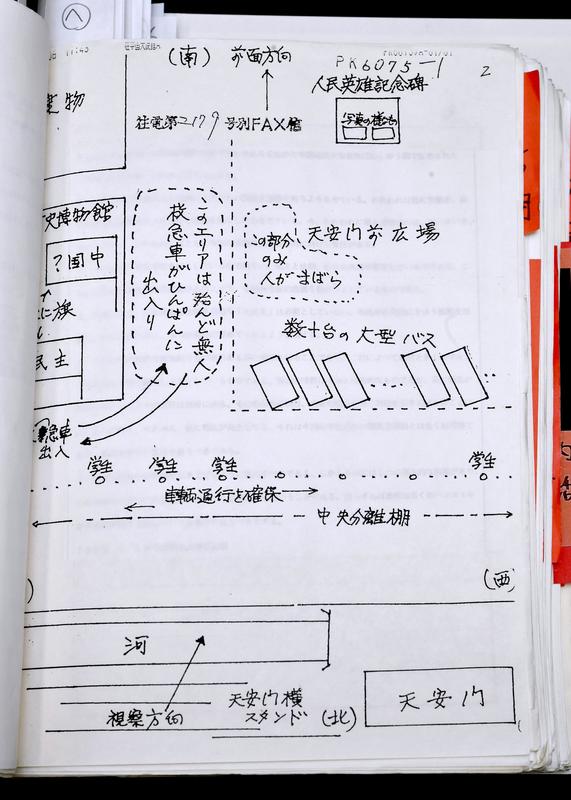 (南) 前面方向
PK6075-1
2
人民英雄記念碑
往電第2179号別FAX信
天安門前広場
この部分
のみ
人がまばら
このエリアは殆んど無人
救急車がひんぱんに
出入り
史博物館
?国中
に旗
民主
数十台の大型バス
急車
出入
学生 学生 学生 学生
車輌通行を確保
中央分離棚
(西)
河
視察方向
天安門横
スタンド
(北)
天安門